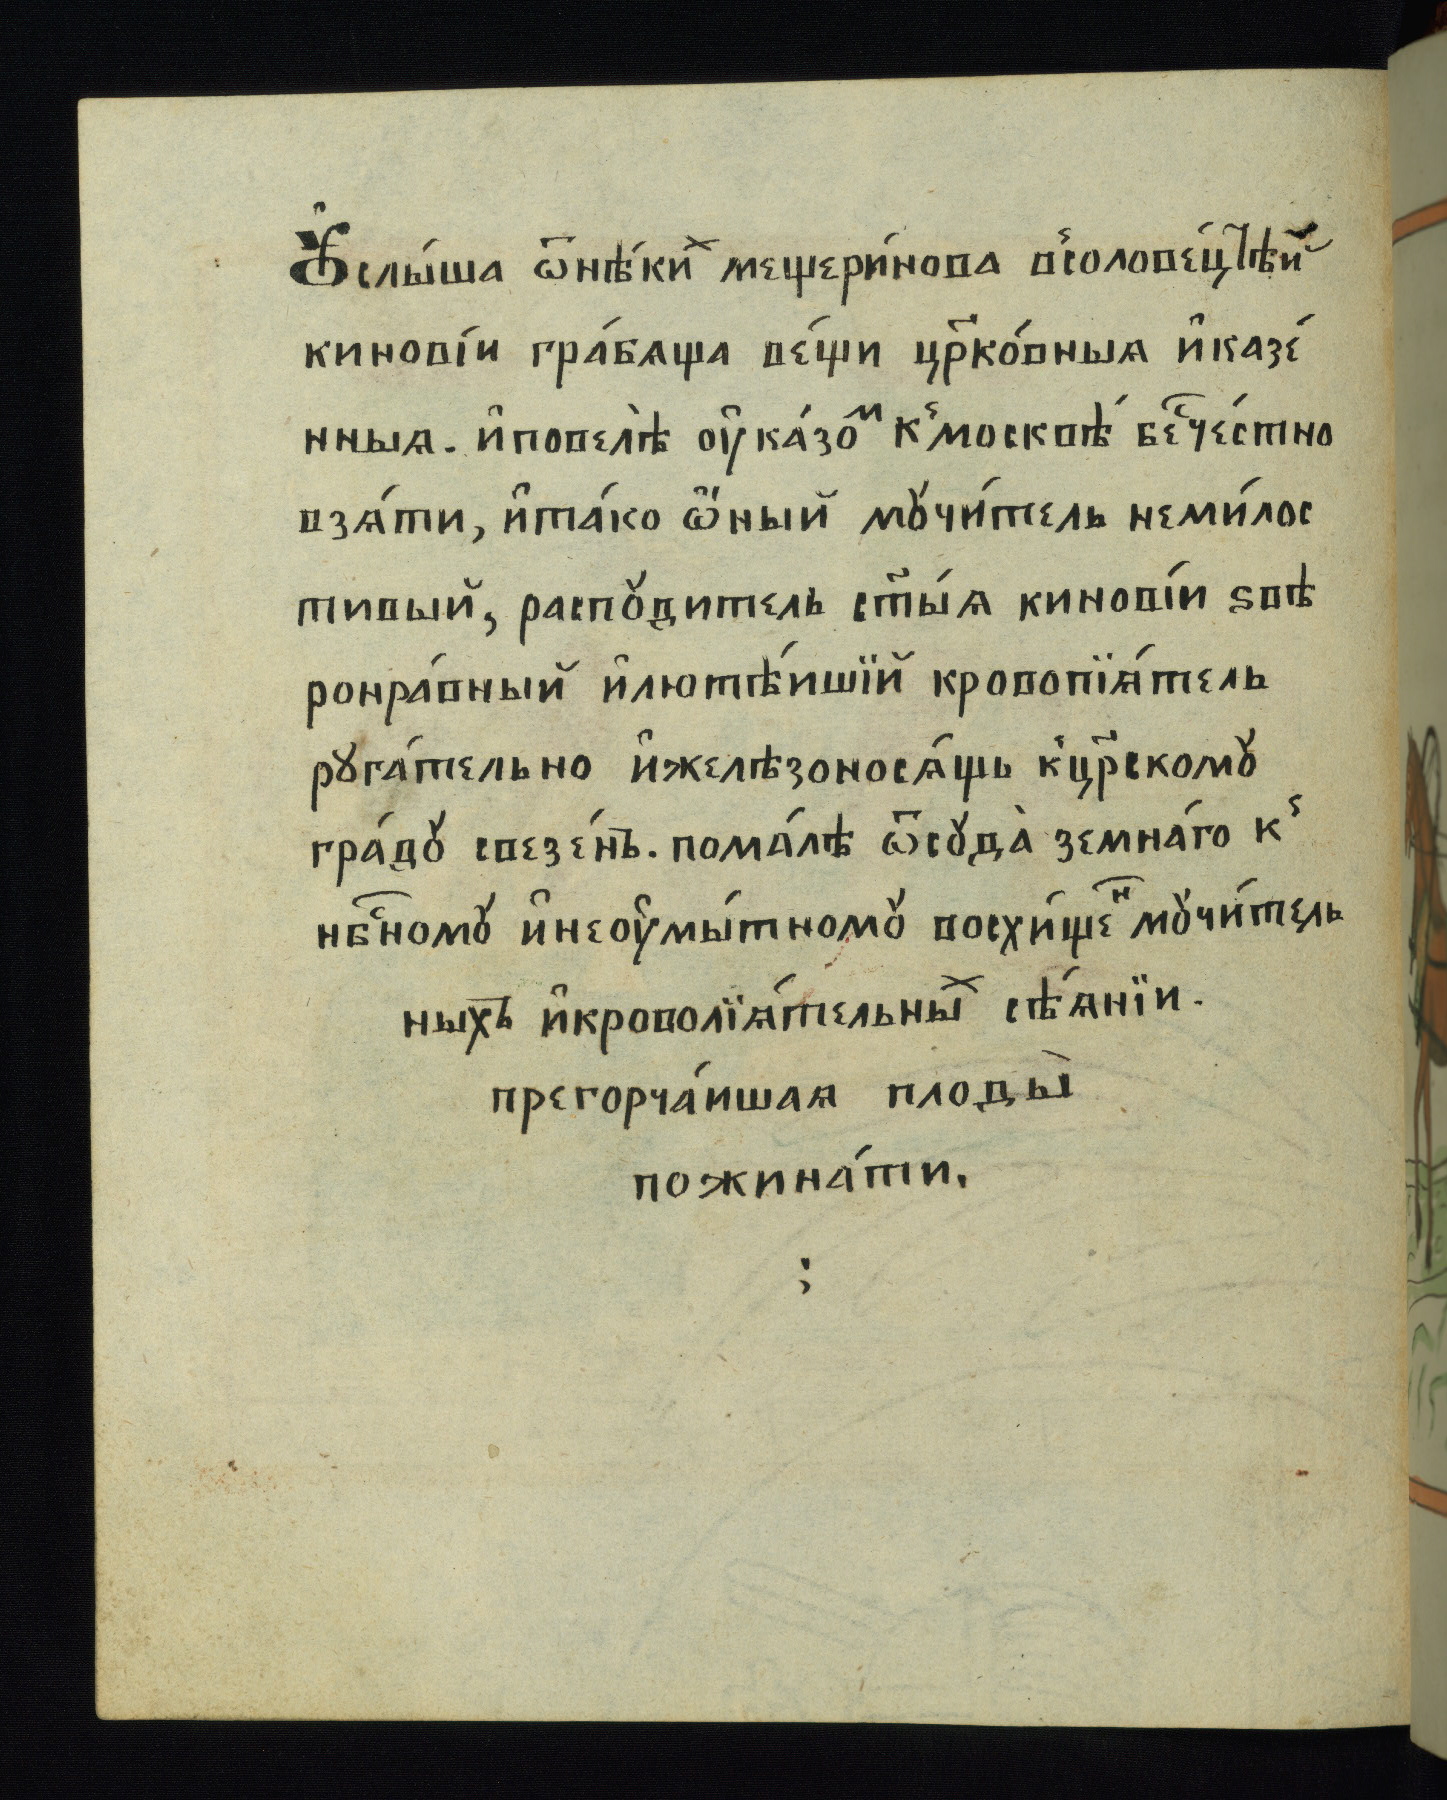 Ꙋ҆слы́ша ѿнѣ́киⷯ мещери́нова в̾солове́цтѣ́й
кинові́и гра́бѧща ве́щи цр҃ко́вныѧ и҆казе́
нныѧ. и҆повелѣ̀ оу҆ка́зоⷨ к̾москвѣ́ беⷭче́стно
взѧ́ти, и҆та́ко ѡ҆́ный мꙋчи́тель неми́лос
тивый, распꙋдитель ст҃ы́ѧ кинові́и ѕвѣ
ронра́вный и҆лютѣ́ишїй кровопїѧ́тель
рꙋга́тельно и҆желѣзоносѧ́щь к̾цр҃скомꙋ
гра́дꙋ свезе́нъ. пома́лѣ ѿсꙋда̀ земна́го к̾
нбⷭ҇номꙋ и҆неоу҆мы́тномꙋ восхи́щеⷩ мꙋчи́тель
ныхъ и҆кроволїѧ́тельныⷯ сѣ́ѧнїи.
прегорча́ишаѧ плоды̀
пожина́ти.
;